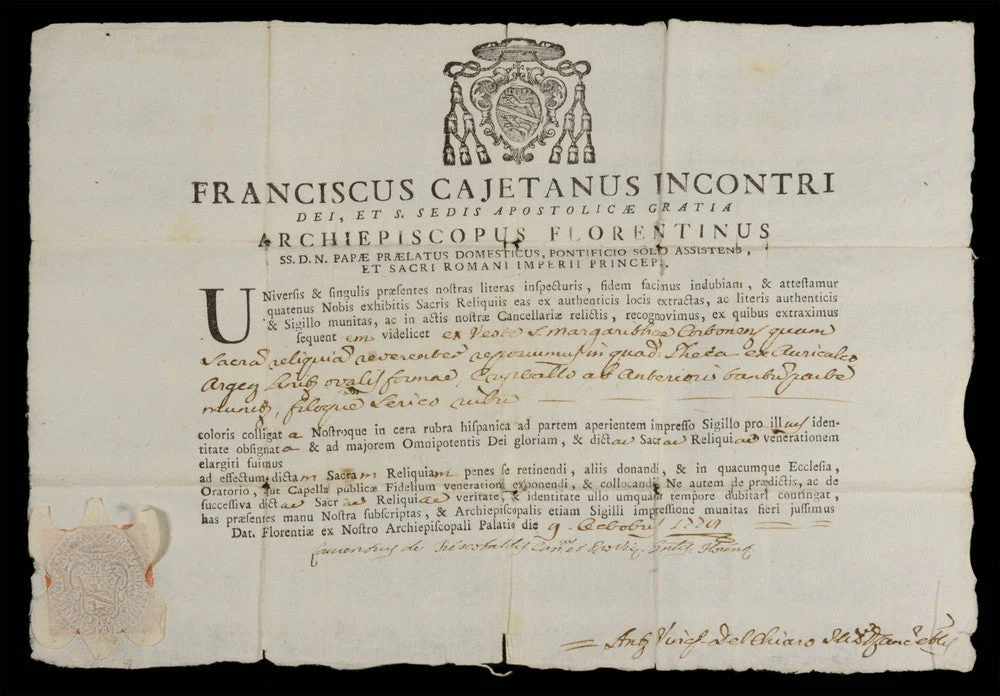 FRANCISCUS CAJETANUS INCONTRI
DEI, ET S. SEDIS APOSTOLICÆ GRATIA
ARCHIEPISCOPUS FLORENTINUS
SS. D. N. PAPÆ PRÆLATUS DOMESTICUS, PONTIFICIO SOLIO ASSISTENS,
ET SACRI ROMANI IMPERII PRINCEPS.
UNiversis & singulis præsentes nostras literas inspecturis, fidem facimus indubiam, & attestamur
quatenus Nobis exhibitis Sacris Reliquiis eas ex authenticis locis extractas, ac literis authenticis
& Sigillo munitas, ac in actis nostræ Cancellariæ relictis, recognovimus, ex quibus extraximus
sequentem videlicet ex Veste S. Margarithæ quam
Sacrã reliquiã reverenter reposuimus in quad. Theca ex Auricalco
ovalis formae, ab Anteriori parte
filoque Serico rubri
coloris colligata Nostroque in cera rubra hispanica ad partem aperientem impresso Sigillo pro illius iden-
titate obsignata & ad majorem Omnipotentis Dei gloriam, & dictae Sacrae Reliquiae venerationem
elargiti fuimus
ad effectum dictam Sacram Reliquiam penes se retinendi, aliis donandi, & in quacumque Ecclesia,
Oratorio, aut Capella publicæ Fidelium venerationi exponendi, & collocandi. Ne autem de prædictis, ac de
successiva dictae Sacrae Reliquiae veritate, & identitate ullo umquam tempore dubitari contingat,
has præsentes manu Nostra subscriptas, & Archiepiscopalis etiam Sigilli impressione munitas fieri jussimus
Dat. Florentiæ ex Nostro Archiepiscopali Palatio die 9 Octobris
de
Del Chiaro